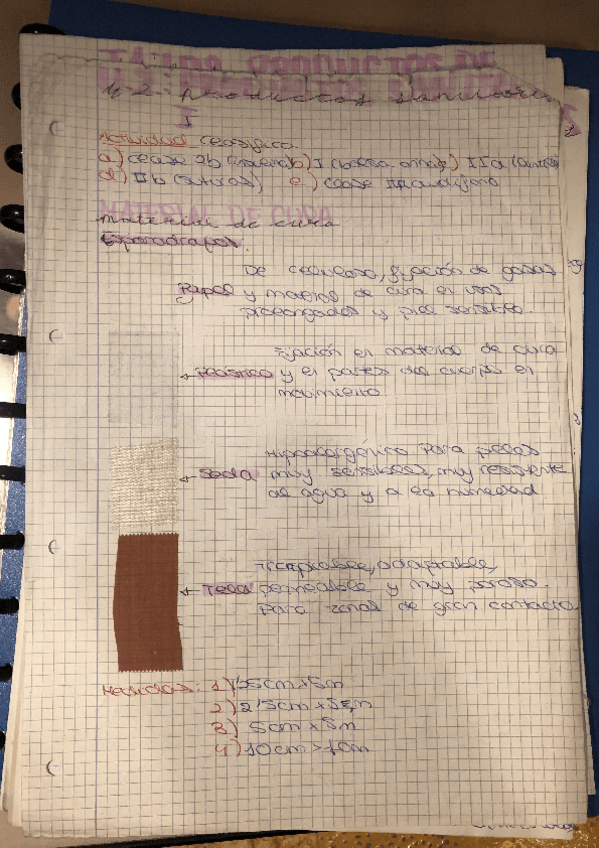 T.4: LOS PRODUCTOS DE
4.2. Productos sanitarios
I
Actividad clasifica
a) clase IIb b) I (bolsa c) IIa
d) IIb (suturas) e) clase III
MATERIAL DE CURA
material de cura
Esparadrapos:
Papel
De celulosa, fijación de gasas
y material de cura en usos
prolongados y piel sensible.
Plástico
Fijación en material de cura
y en partes del cuerpo en
movimiento.
Seda
Hipoalergénico Para pieles
muy sensibles, muy resistente
al agua y a la humedad
Tela
Transpirable, adaptable,
permeable y muy poroso.
Para zonas de gran contacto
Medidas: 1) 5m
2) 2'5cm x 5m
3) 5cm x 5m
4) 10cm x 10m